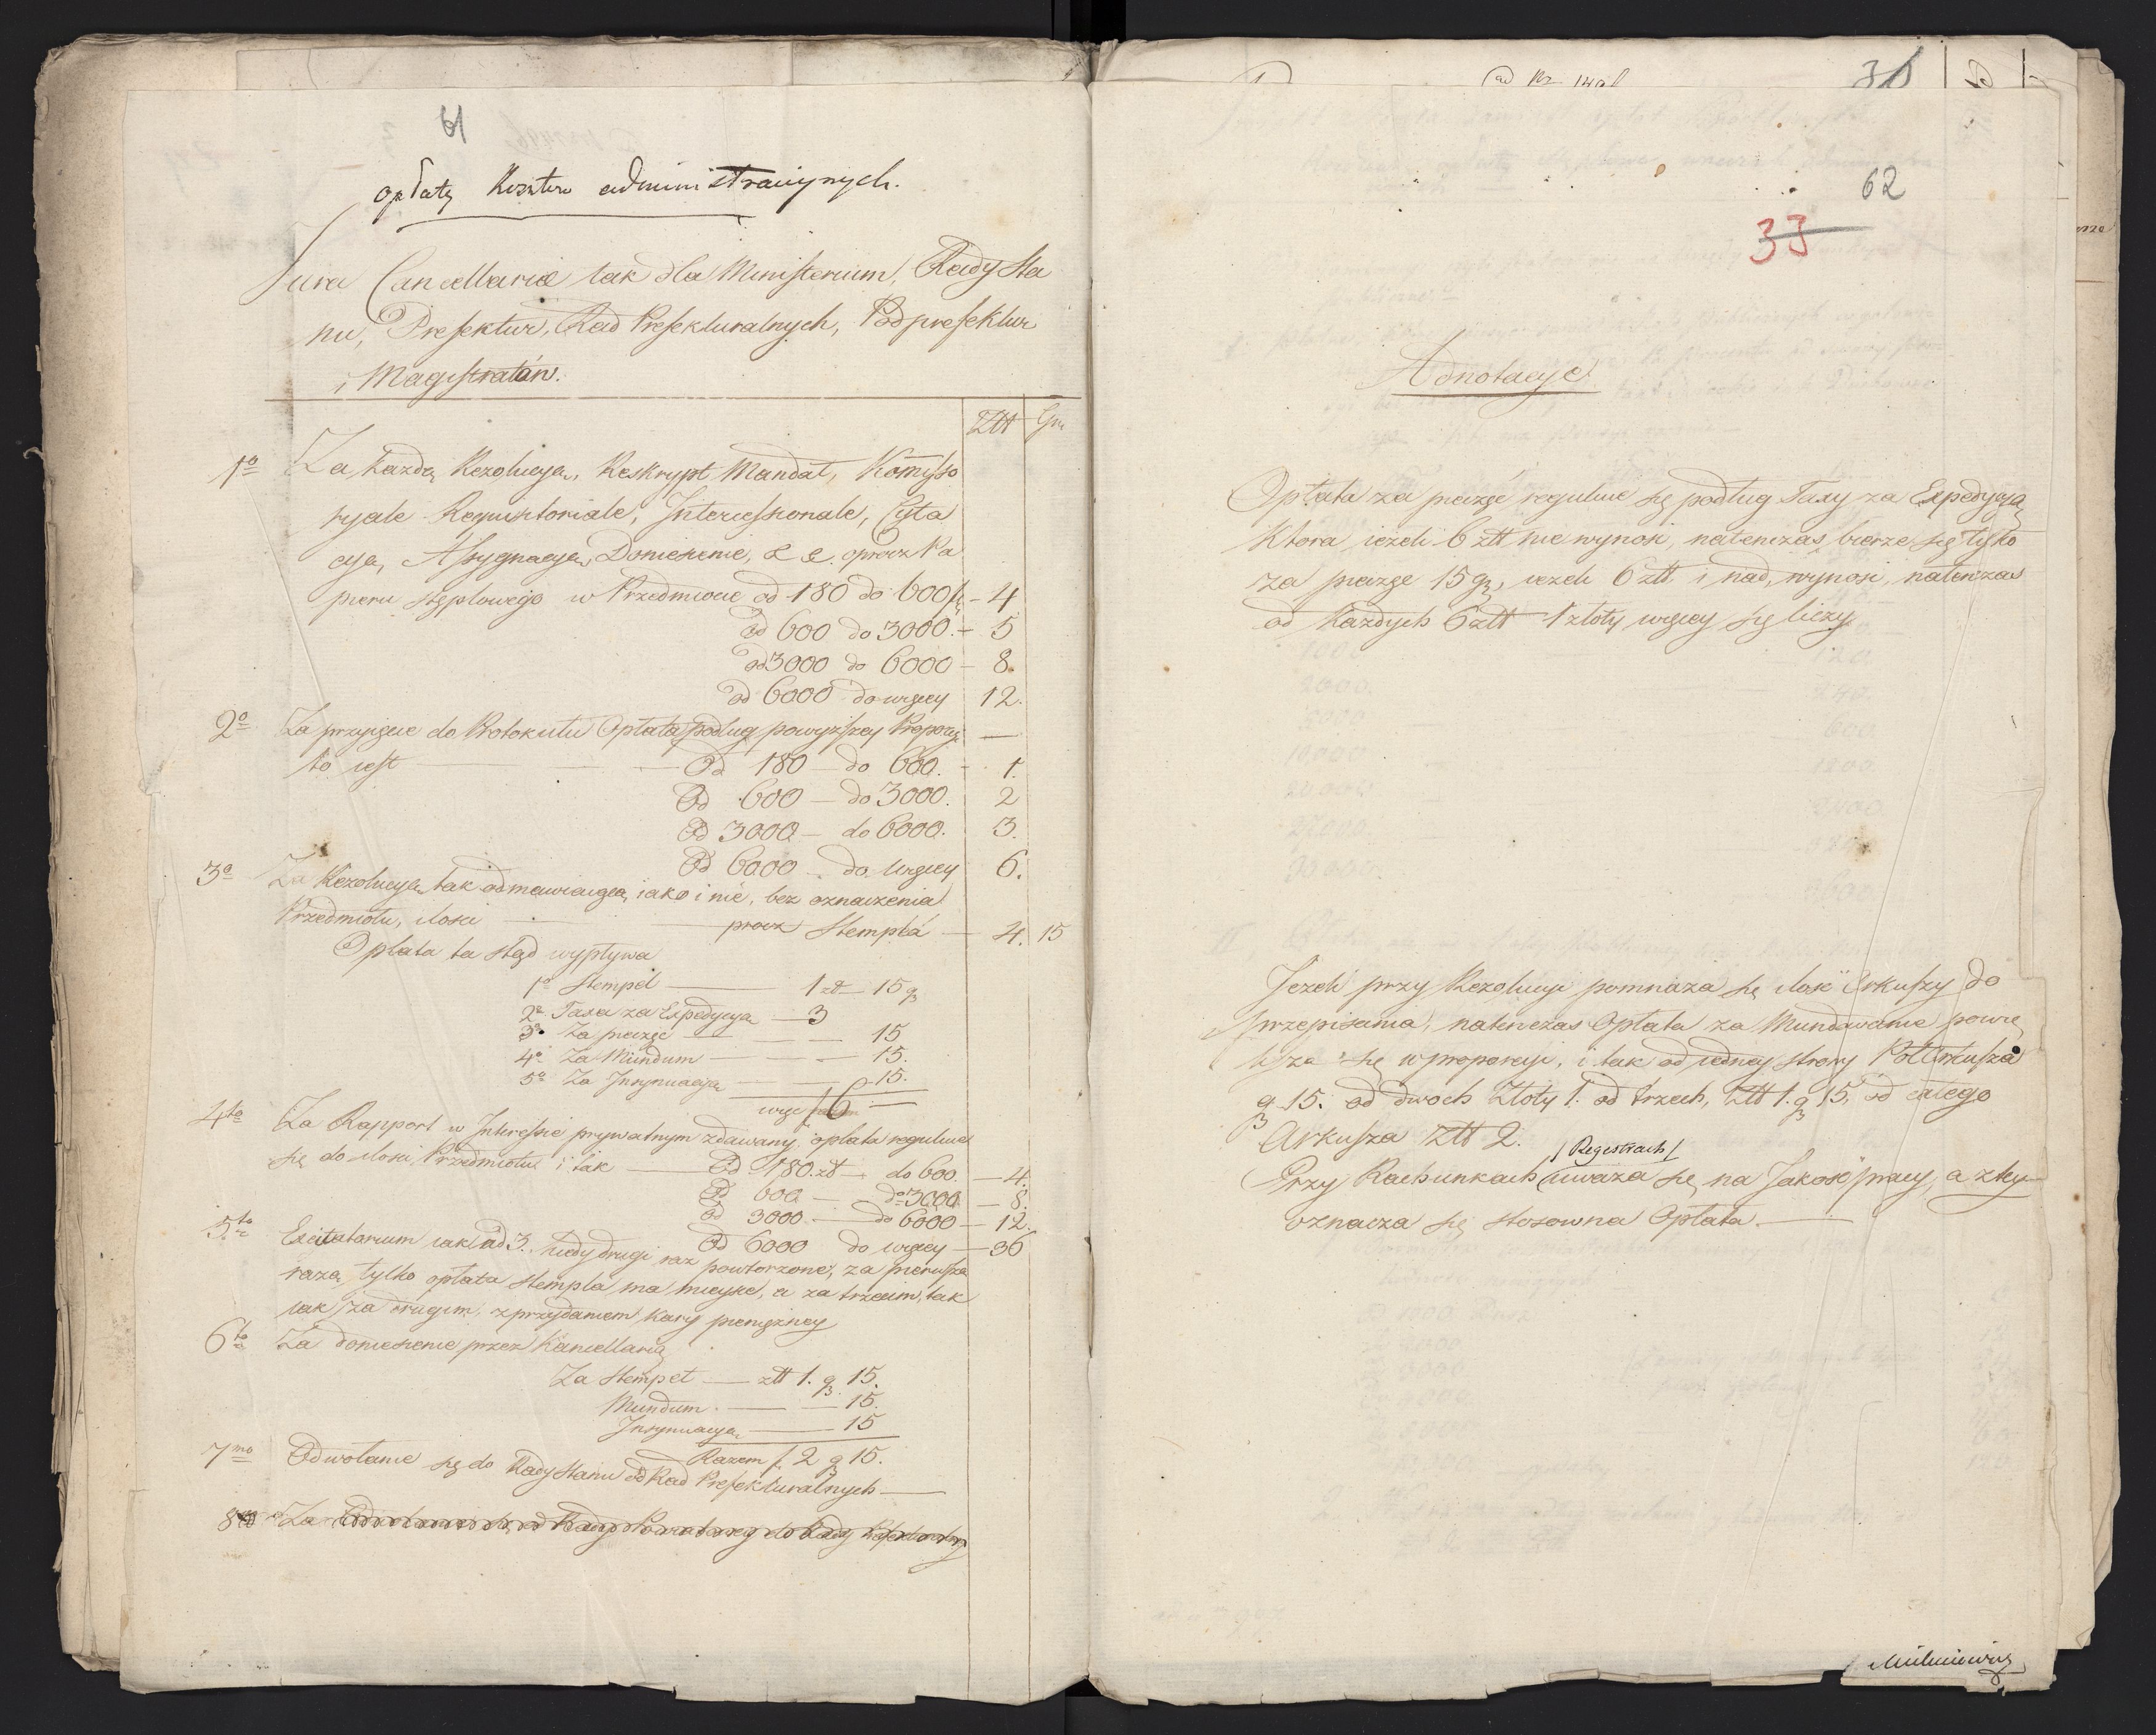 61
opłaty kosztów administracyinych.
Jura Cancellariae tak dla Ministerium, Rady Sta
nu, Prefektur, Rad Prefekturalnych, Podprefektur
i Magistratów.
Ztt Gr.
1o Za każdą Rezolucyą, Reskrypt Mandat, Komisso
ryale Requisitoriale, Intercessionale, Cyta
cyą, Assygnacyą, Doniesienie, & &. oprocz Pa
pieru stęplowego w Przedmiocie od 180 do 600 f. – 4
od 600 do 3000. – 5
od 3000 do 6000 – 8.
od 6000 do więcey 12.
2o Za przyięcie do Protokułu Opłata podług powyższey Proporcyi —
to iest — Od 180 — do 600. – 1.
Od 600 — do 3000. 2
Od 3000 — do 6000. 3.
Od 6000 — do więcey 6.
3o Za Rezolucyą tak odmawiaiącą, iako i nie, bez oznaczenia
Przedmiotu, ilości — procz Stempla — 4. 15
Opłata ta ztąd wypływa
1o Stempel — 1 zt — 15 g
2o Taxa za Expedycyą — 3
3o Za pieczęć — 15
4o Za Mundum — 15.
5o Za Insynuacyą — 15.
więc f. 6 —
4to Za Rapport w Interessie prywatnym zdawany, opłata reguluie
się do ilości Przedmiotu i tak — Od 180. zt — do 600. — 4.
Od 600 — do 3000 — 8.
od 3000 — do 6000 — 12.
Od 6000 do więcey — 36
5to Excitatorium iak ad 3. kiedy drugi raz powtorzone, za pierwszą
razą tylko opłata stempla ma mieysce, a za trzecim, tak
iak za drugim, z przydaniem kary pieniężney
6to Za doniesienie przez Kancellaryą
Za Stempel — ztt 1. g 15.
Mundum. — 15.
Insynuacyą — 15
Razem f. 2 g 15.
7mo Odwołanie się do Rady Stanu od Rad Prefekturalnych —
8vo Za Odwołanie się od Rady Powiatowey do Rady Prefekturalney
ad Nr 1401
31
62
33
Adnotacye
Opłata za pieczęć reguluie się podług Taxy za Expedycyą
Ktora ieżeli 6 ztt nie wynosi, natenczas bierze się tylko
za pieczęć 15 g, ieżeli 6 ztt i nad, wynosi, natenczas
od każdych 6 ztt 1 złoty więcey się liczy
Jeżeli przy Rezolucyi pomnaża się ilość Arkuszy do
przepisania, natenczas Opłata za Mundowanie powię
ksza się w proporcyi, i tak od iedney strony Poł Arkusza
g 15. od dwoch Złoty 1. od trzech, Ztt 1. g 15. od całego
Arkusza Ztt 2.
/Regestrach/
Przy Rachunkach uważa się na Jakość pracy, a z tey
oznacza się stosowna Opłata. —